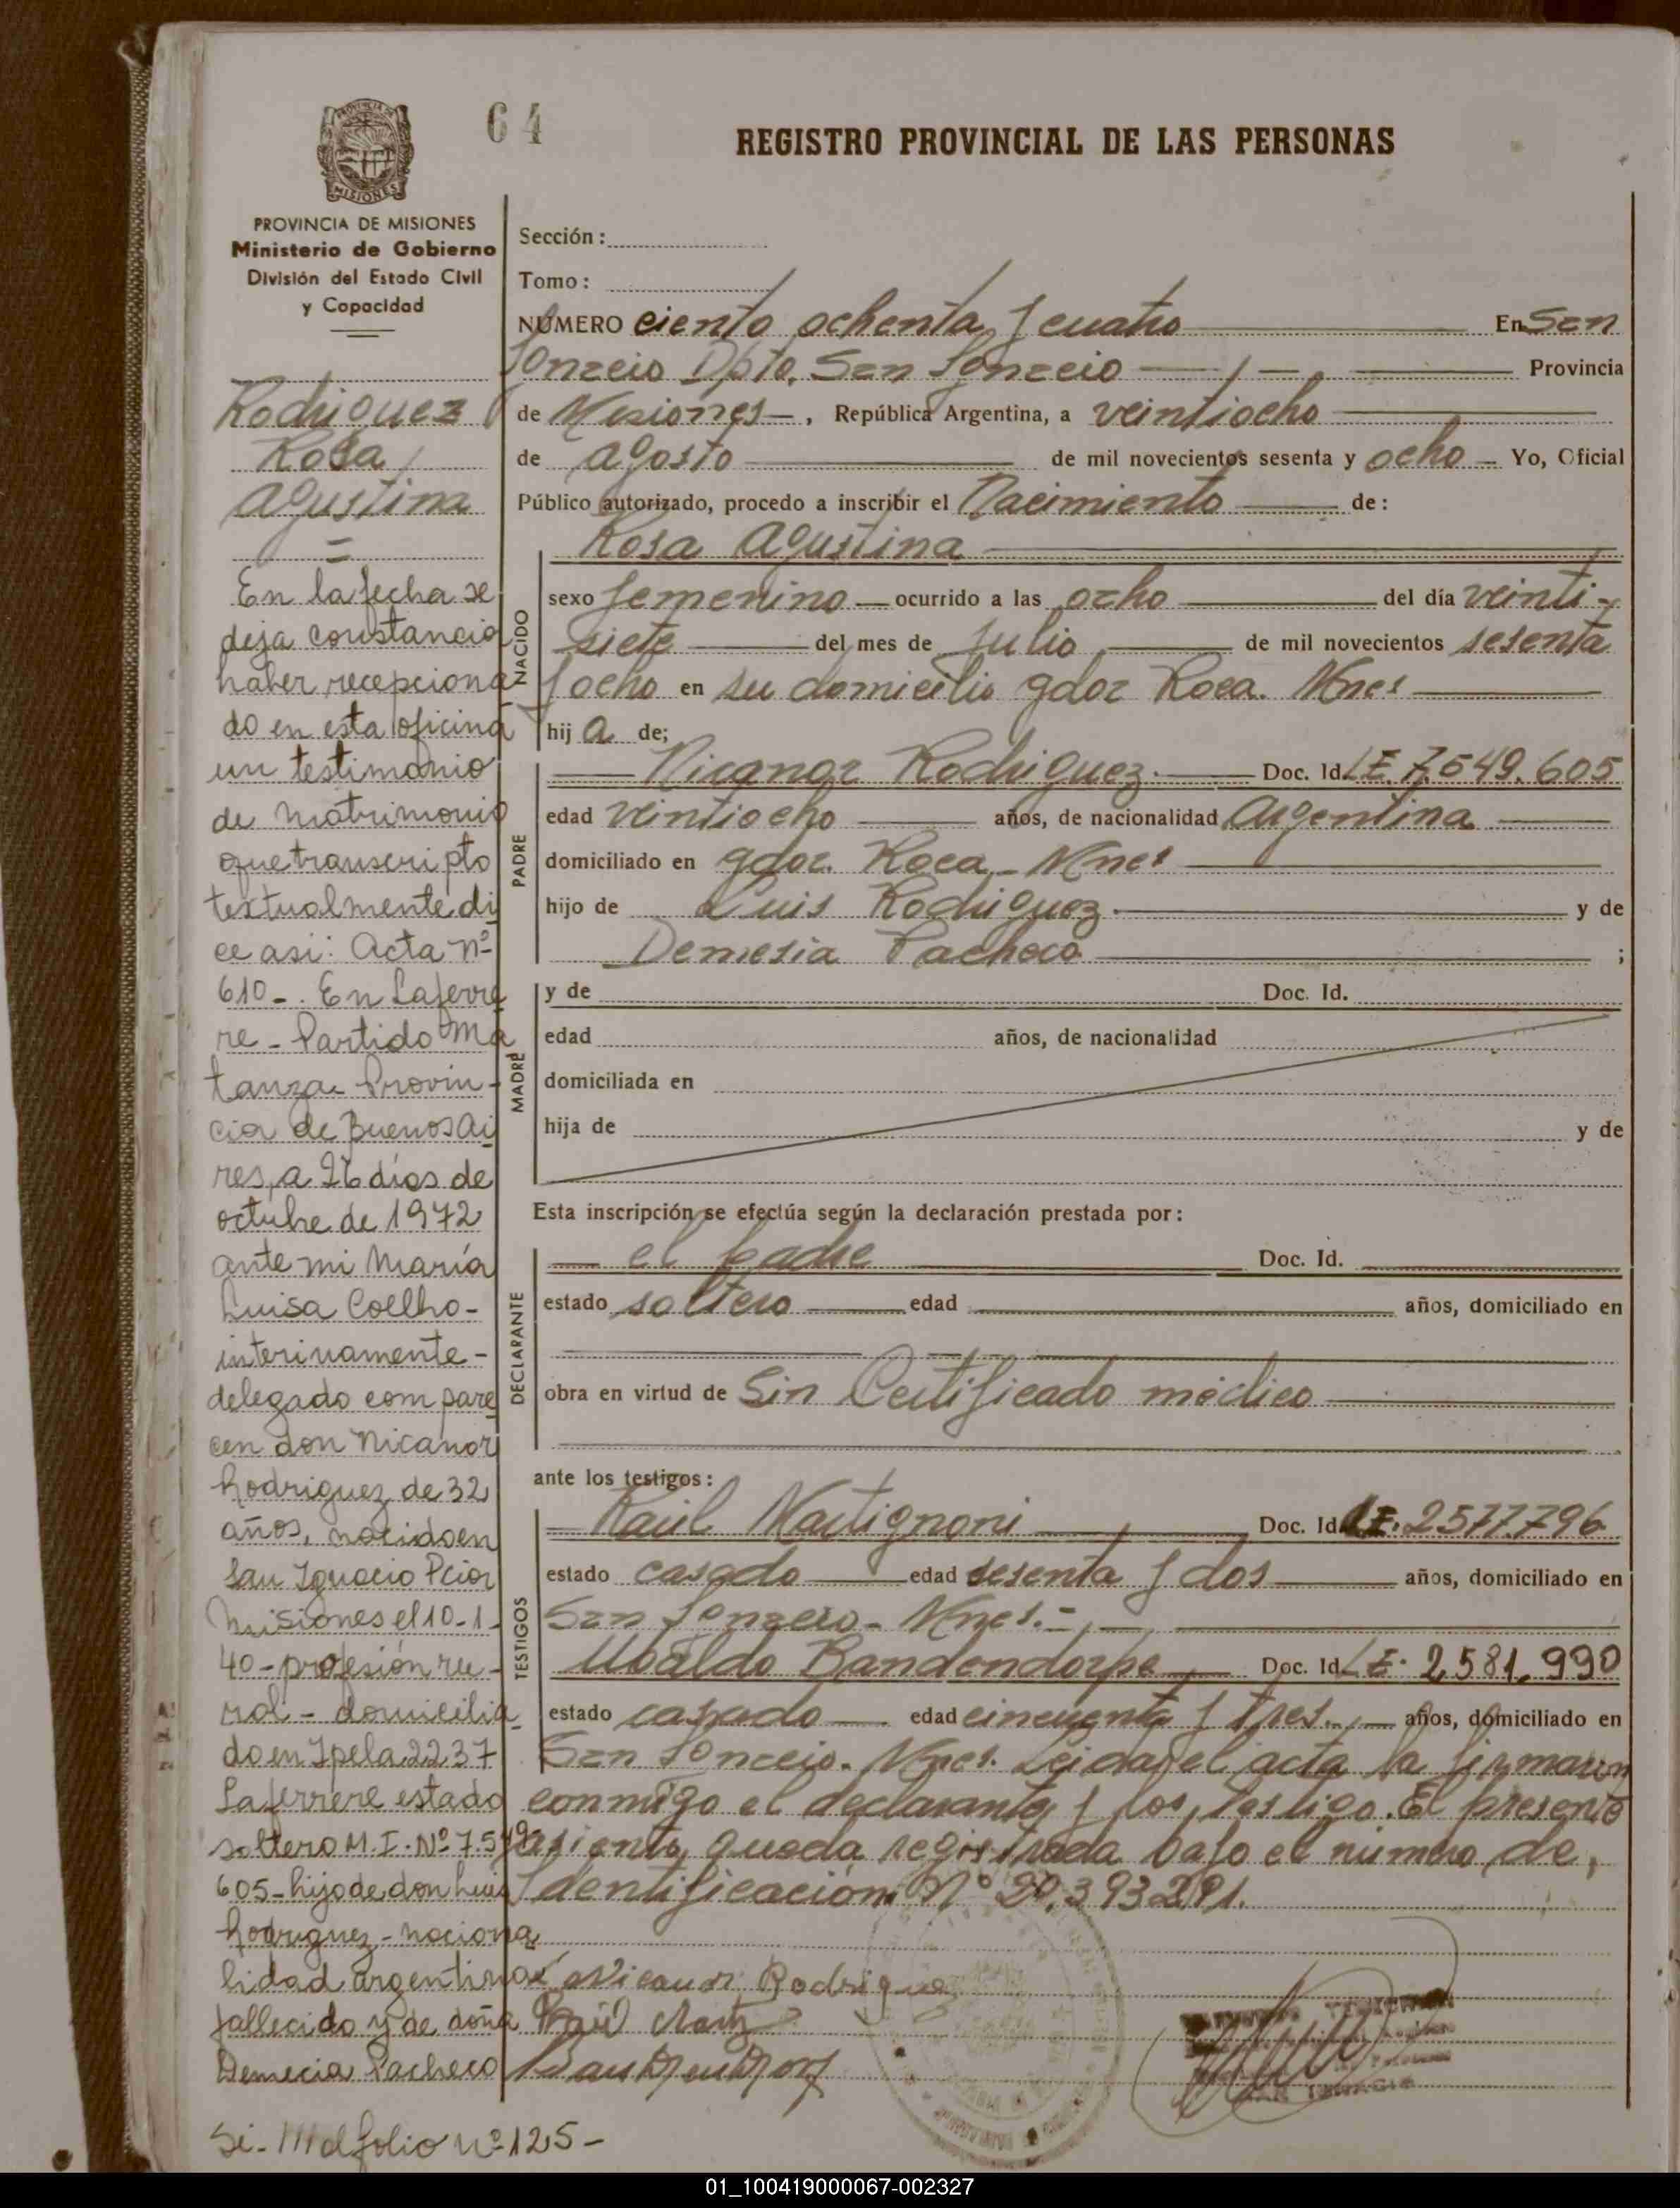 64
REGISTRO PROVINCIAL DE LAS PERSONAS
MISIONES
PROVINCIA DE MISIONES
Ministerio de Gobierno
División del Estado Civil
y Capacidad
Rodriguez
Rosa
Agustina
=
En la fecha se
deja constancia
haber recepciona
do en esta oficina
un testimonio
de matrimonio
que transcripto
textualmente di
ce asi: Acta nº
610-. En Laferre
re - Partido Ma
tanza Provin-
cia de Buenos Ai
res, a 26 días de
octubre de 1972
ante mi María
Luisa Coelho-
interinamente-
delegado compare
cen don Nicanor
Rodriguez de 32
años, nacido en
San Ignacio Pcia
Misiones el 10-1-
40- profesión ru-
ral - domicilia
do en Ipela 2237
Laferrere estado
soltero M.I. Nº 7.549
605- hijo de don Luis
Rodriguez - naciona
lidad argentina
fallecido y de doña
Demecia Pacheco
Si- /// al folio nº 125-
Sección:
Tomo:
NUMERO ciento ochenta y cuatro En San
Ignacio Dpto. San Ignacio Provincia
de Misiones, República Argentina, a veintiocho
de agosto de mil novecientos sesenta y ocho - Yo, Oficial
Público autorizado, procedo a inscribir el Nacimiento de:
Rosa Agustina
NACIDO
sexo femenino ocurrido a las ocho del día veinti-
siete del mes de Julio de mil novecientos sesenta
y ocho en su domicilio gdor Roca. Mnes
hij a de;
PADRE
Nicanor Rodriguez. Doc. Id. LE. 7.549.605
edad veintiocho años, de nacionalidad Argentina
domiciliado en gdor. Roca - Mnes
hijo de Luis Rodriguez. y de
Demesia Pachoco ;
MADRE
y de Doc. Id.
edad años, de nacionalidad
domiciliada en
hija de y de
Esta inscripción se efectúa según la declaración prestada por:
DECLARANTE
el padre Doc. Id.
estado soltero edad años, domiciliado en
obra en virtud de Sin Certificado médico
ante los testigos:
TESTIGOS
Raúl Martignoni Doc. Id. LE. 2577796
estado casado edad sesenta y dos años, domiciliado en
San Ignacio - Mnes.-
Ubaldo Bandendorpe Doc. Id. LE. 2,581,990
estado casado edad cincuenta y tres. años, domiciliado en
San Ignacio. Mnes. Leida el acta la firmaron
conmigo el declarante y los testigo. El presente
asiento queda registrada bajo el número de,
Identificación Nº 20.393291.
Nicanor Rodriguez
Raúl Martg
01_100419000067-002327